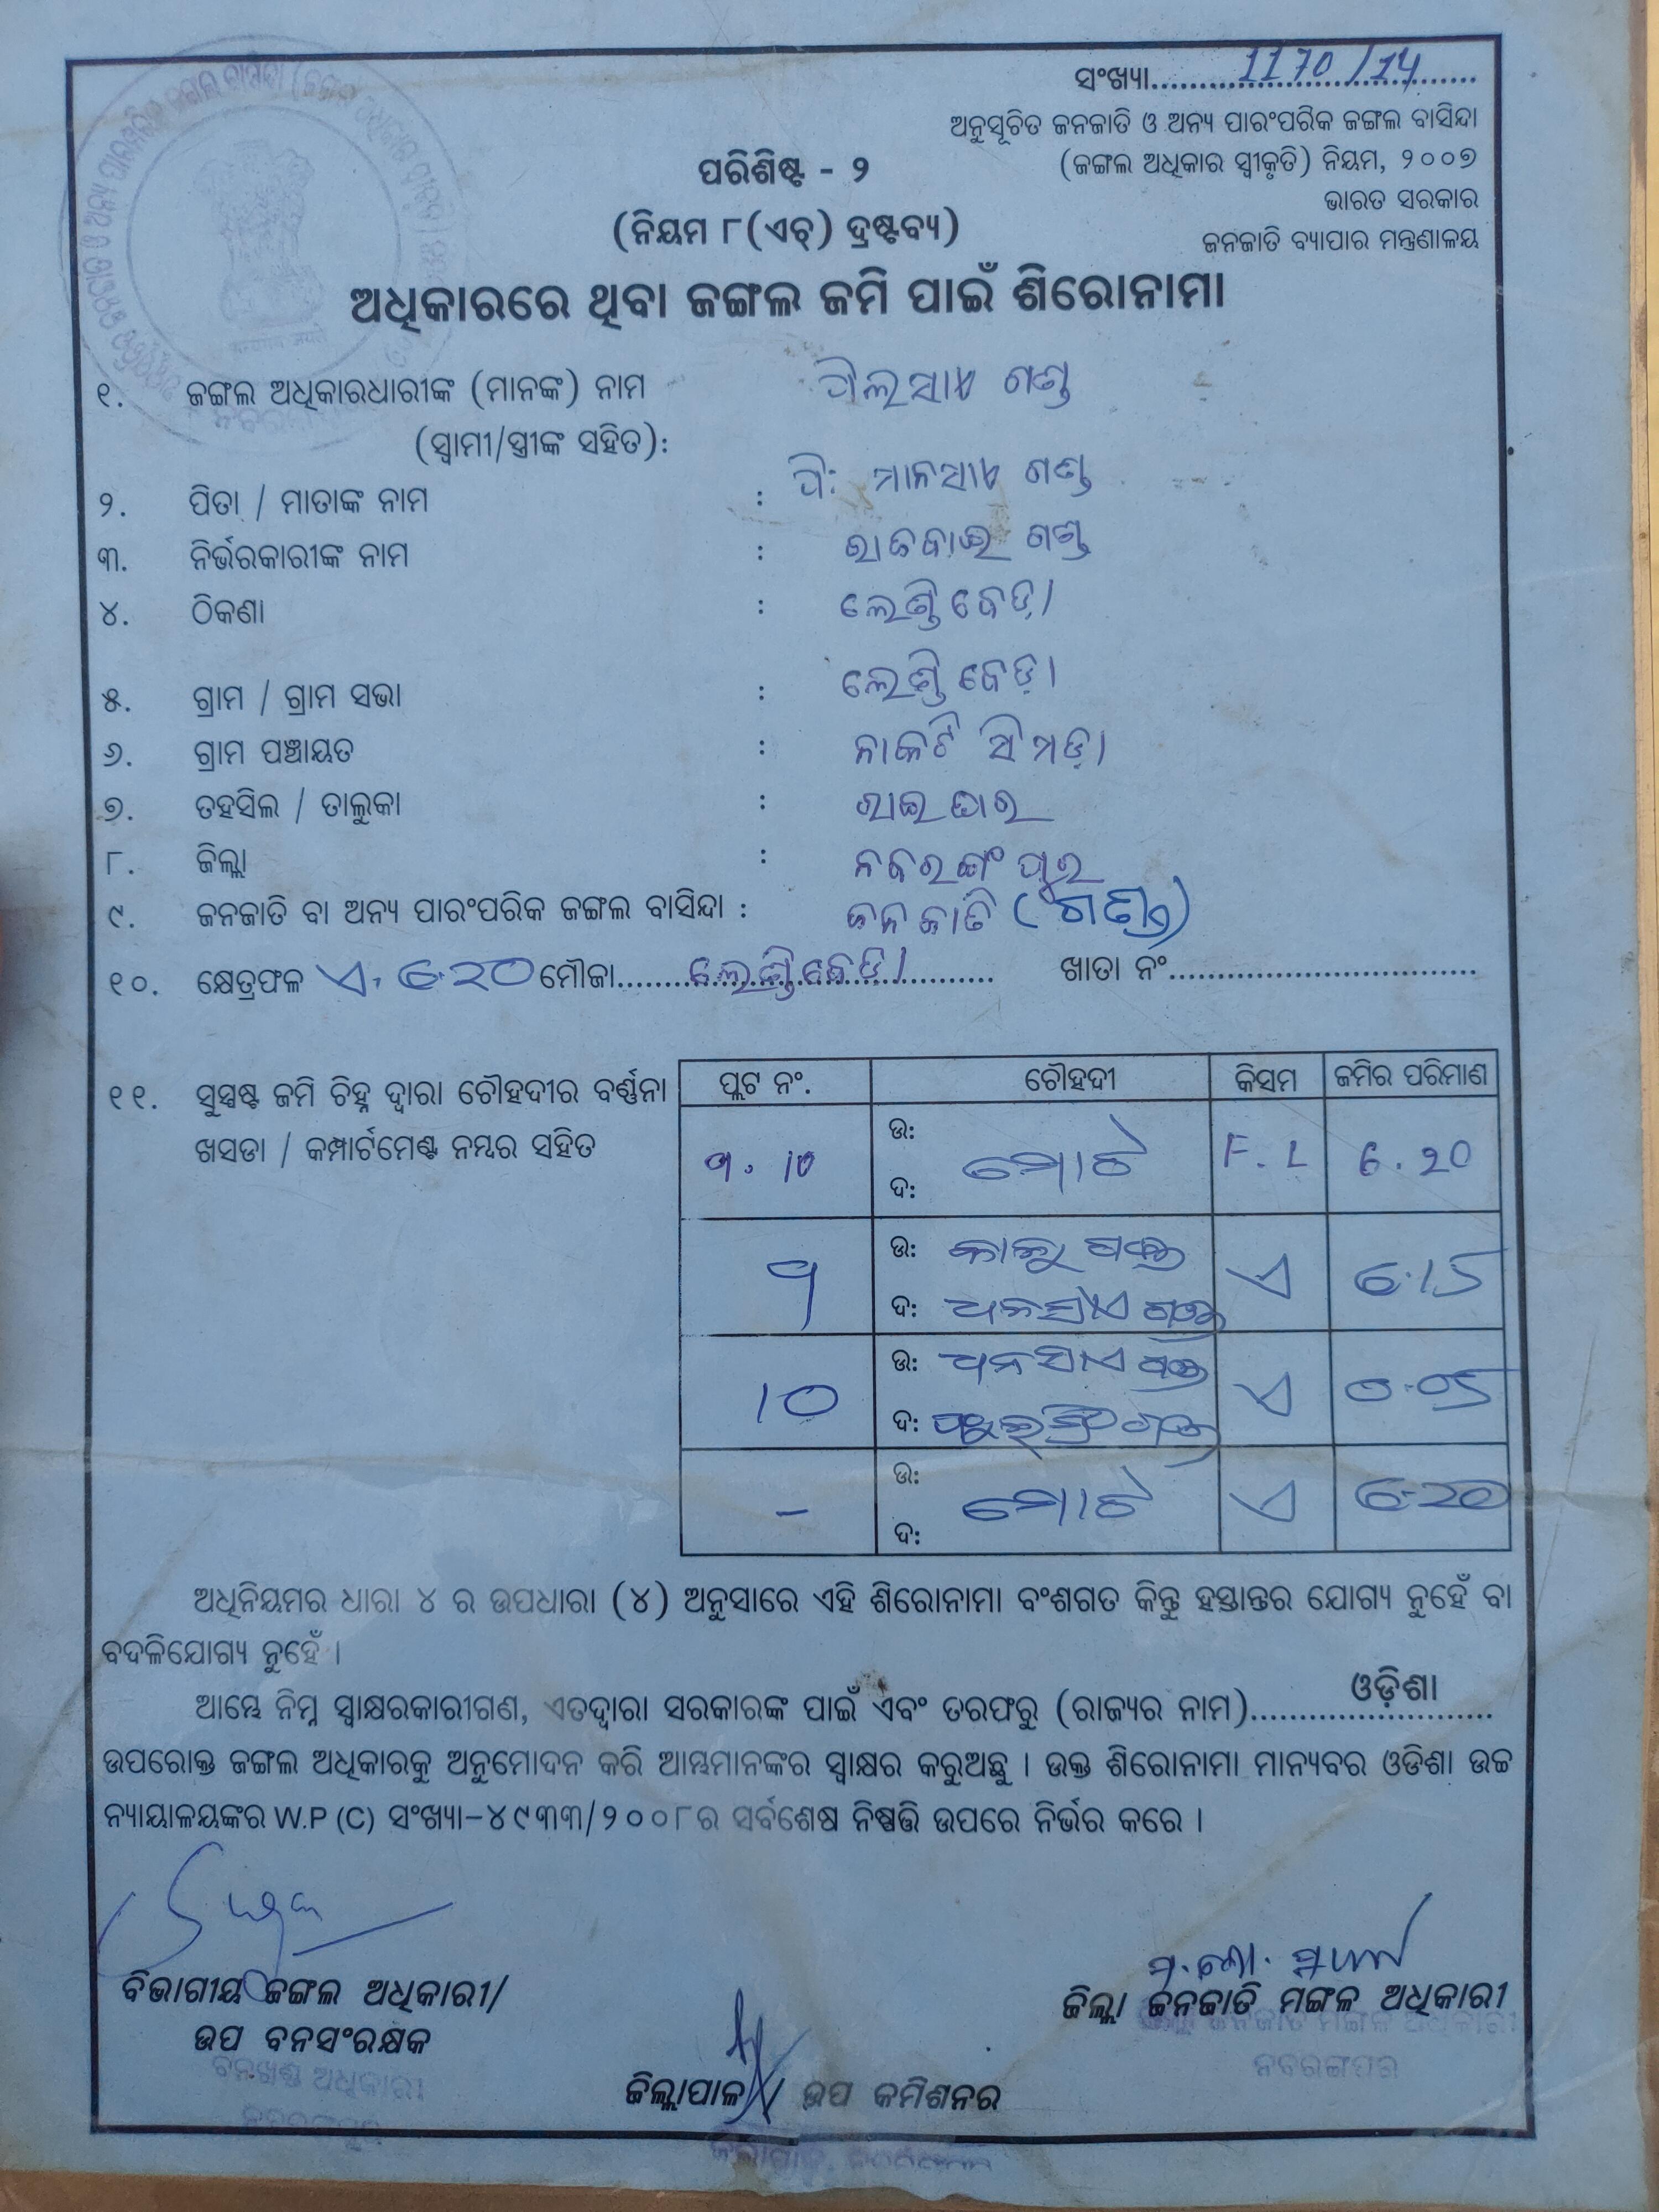 ସଂଖ୍ୟା.................1170/14
ଅନୁସୂଚିତ ଜନଜାତି ଓ ଅନ୍ୟ ପାରଂପରିକ ଜଙ୍ଗଲ ବାସିନ୍ଦା
(ଜଙ୍ଗଲ ଅଧିକାର ସ୍ୱୀକୃତି) ନିୟମ, ୨୦୦୭
ଭାରତ ସରକାର
ଜନଜାତି ବ୍ୟାପାର ମନ୍ତ୍ରଣାଳୟ
ପରିଶିଷ୍ଟ - ୨
(ନିୟମ ୮(ଏଚ୍) ଦ୍ରଷ୍ଟବ୍ୟ)
ଅଧିକାରରେ ଥିବା ଜଙ୍ଗଲ ଜମି ପାଇଁ ଶିରୋନାମା
୧. ଜଙ୍ଗଲ ଅଧିକାରଧାରୀଙ୍କ (ମାନଙ୍କ) ନାମ ଗଣ୍ଡ
(ସ୍ୱାମୀ/ସ୍ତ୍ରୀଙ୍କ ସହିତ):
୨. ପିତା / ମାତାଙ୍କ ନାମ : ପି: ମାନସାଏ ଗଣ୍ଡ
୩. ନିର୍ଭରକାରୀଙ୍କ ନାମ : ଗଣ୍ଡ
୪. ଠିକଣା : ଲେଣ୍ଡିବେଡ଼ା
୫. ଗ୍ରାମ / ଗ୍ରାମ ସଭା : ଲେଣ୍ଡିବେଡ଼ା
୬. ଗ୍ରାମ ପଞ୍ଚାୟତ : ନାକଟି ସିମଡ଼ା
୭. ତହସିଲ / ତାଲୁକା : ରାଇଘର
୮. ଜିଲ୍ଲା : ନବରଙ୍ଗପୁର
୯. ଜନଜାତି ବା ଅନ୍ୟ ପାରଂପରିକ ଜଙ୍ଗଲ ବାସିନ୍ଦା : ଜନଜାତି (ଗଣ୍ଡ)
୧୦. କ୍ଷେତ୍ରଫଳ ଏ. 6.20 ମୌଜା.....ଲେଣ୍ଡିବେଡ଼ା..... ଖାତା ନଂ...............................
୧୧. ସୁସ୍ପଷ୍ଟ ଜମି ଚିହ୍ନ ଦ୍ୱାରା ଚୌହଦୀର ବର୍ଣ୍ଣନା
ଖସଡା / କମ୍ପାର୍ଟମେଣ୍ଟ ନମ୍ବର ସହିତ
ପ୍ଲଟ ନଂ. ଚୌହଦୀ କିସମ ଜମିର ପରିମାଣ
9. 10 ଉ: ଦ: ମୋଟ F.L 6.20
9 ଉ: ଗଣ୍ଡ ଏ 6.15
ଦ: ଧନସାଏ ଗଣ୍ଡ
10 ଉ: ଧନସାଏ ଗଣ୍ଡ ଏ 0.05
ଦ: ଗଣ୍ଡ
- ଉ: ଦ: ମୋଟ ଏ 6.20
ଅଧିନିୟମର ଧାରା ୪ ର ଉପଧାରା (୪) ଅନୁସାରେ ଏହି ଶିରୋନାମା ବଂଶଗତ କିନ୍ତୁ ହସ୍ତାନ୍ତର ଯୋଗ୍ୟ ନୁହେଁ ବା
ବଦଳିଯୋଗ୍ୟ ନୁହେଁ ।
ଆମ୍ଭେ ନିମ୍ନ ସ୍ୱାକ୍ଷରକାରୀଗଣ, ଏତଦ୍ୱାରା ସରକାରଙ୍କ ପାଇଁ ଏବଂ ତରଫରୁ (ରାଜ୍ୟର ନାମ)..........ଓଡ଼ିଶା..........
ଉପରୋକ୍ତ ଜଙ୍ଗଲ ଅଧିକାରକୁ ଅନୁମୋଦନ କରି ଆମ୍ଭମାନଙ୍କର ସ୍ୱାକ୍ଷର କରୁଅଛୁ । ଉକ୍ତ ଶିରୋନାମା ମାନ୍ୟବର ଓଡିଶା ଉଚ୍ଚ
ନ୍ୟାୟାଳୟଙ୍କର W.P (C) ସଂଖ୍ୟା-୪୯୩୩/୨୦୦୮ର ସର୍ବଶେଷ ନିଷ୍ପତ୍ତି ଉପରେ ନିର୍ଭର କରେ ।
ବିଭାଗୀୟ ଜଙ୍ଗଲ ଅଧିକାରୀ/
ଉପ ବନସଂରକ୍ଷକ
ବନଖଣ୍ଡ ଅଧିକାରୀ
ଜିଲ୍ଲାପାଳ / ଉପ କମିଶନର
ଜିଲ୍ଲା ଜନଜାତି ମଙ୍ଗଳ ଅଧିକାରୀ
ଜିଲ୍ଲା ଜନଜାତି ମଙ୍ଗଳ ଅଧିକାରୀ
ନବରଙ୍ଗପୁର